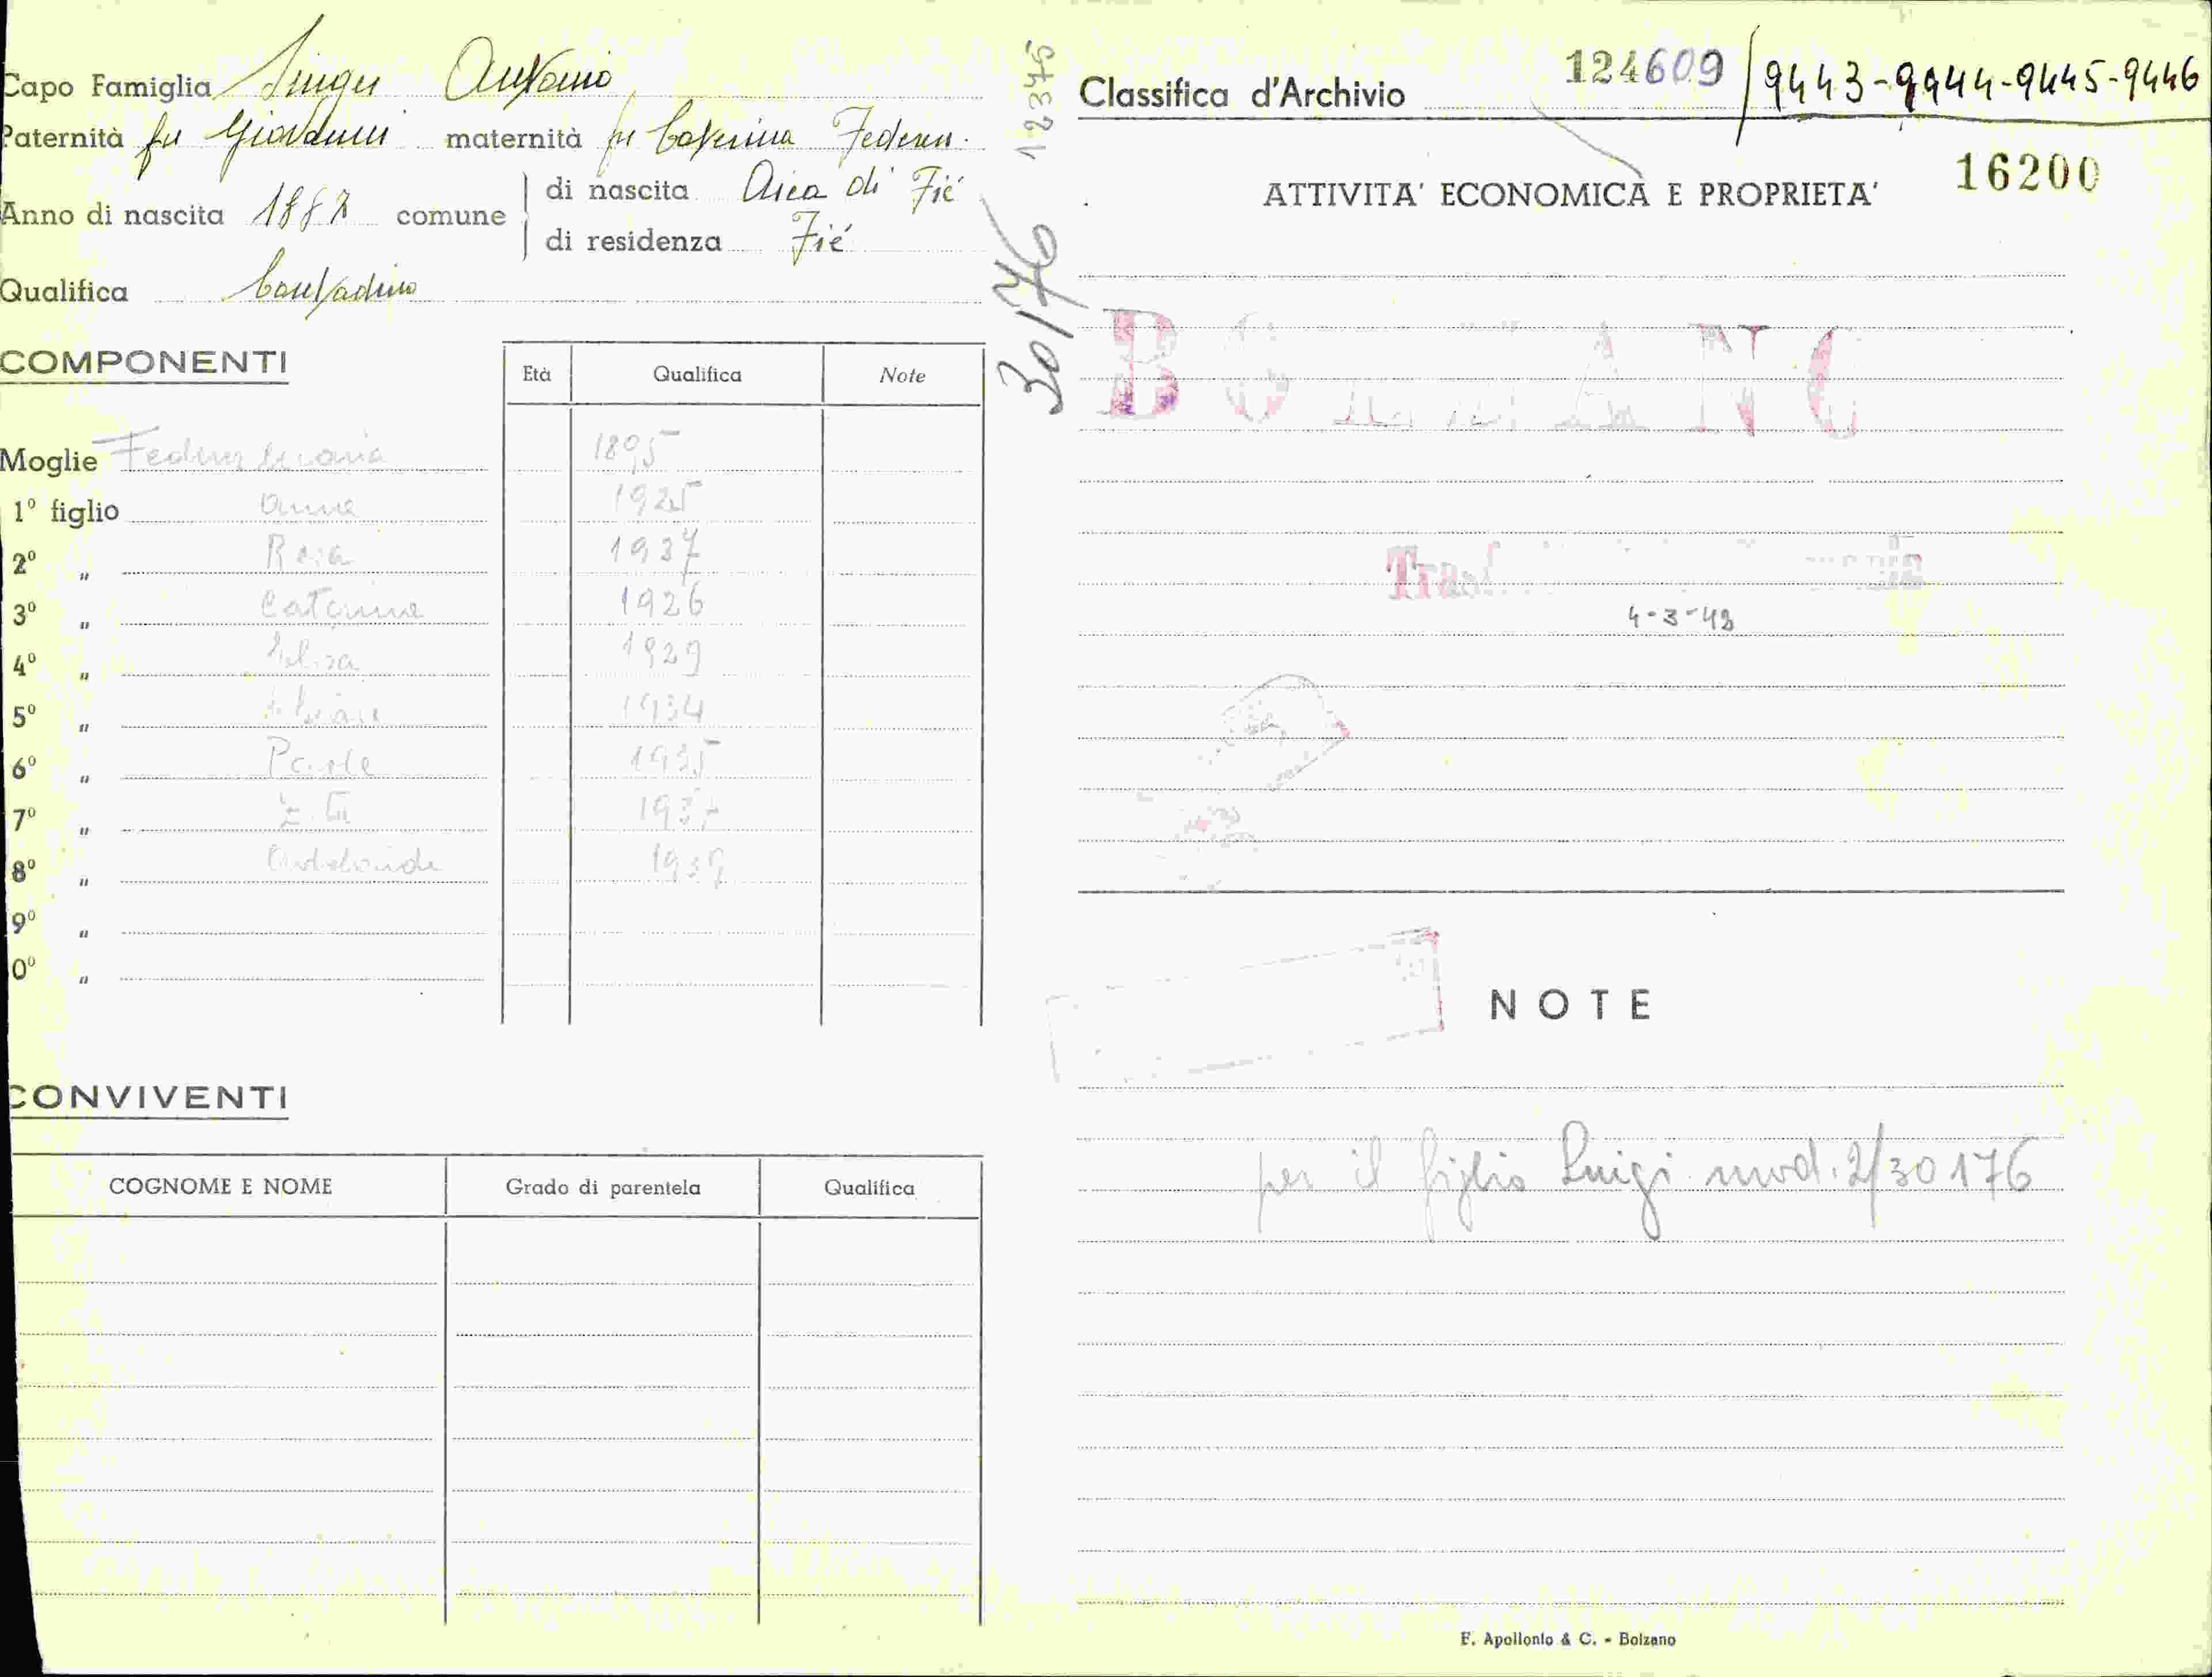 Capo Famiglia Antonio
Paternità fu Giovanni maternità fu Caterina Federer
Anno di nascita 1887 comune di nascita Aica di Fié
di residenza Fié
Qualifica Contadino
COMPONENTI
Età Qualifica Note
Moglie Federer Maria 1895
1º figlio Anna 1925
2º " Rosa 1937
3º " Caterina 1926
4º " 1929
5º " 1934
6º " 1935
7º " 1937
8º " 1939
9º "
0º "
CONVIVENTI
COGNOME E NOME Grado di parentela Qualifica
12375
30176
Classifica d'Archivio 124609 / 9443-9444-9445-9446
16200
ATTIVITA' ECONOMICA E PROPRIETA'
BOLZANO
4-3-43
NOTE
per il figlio Luigi mod. 2/30176
F. Apollonio & C. - Bolzano